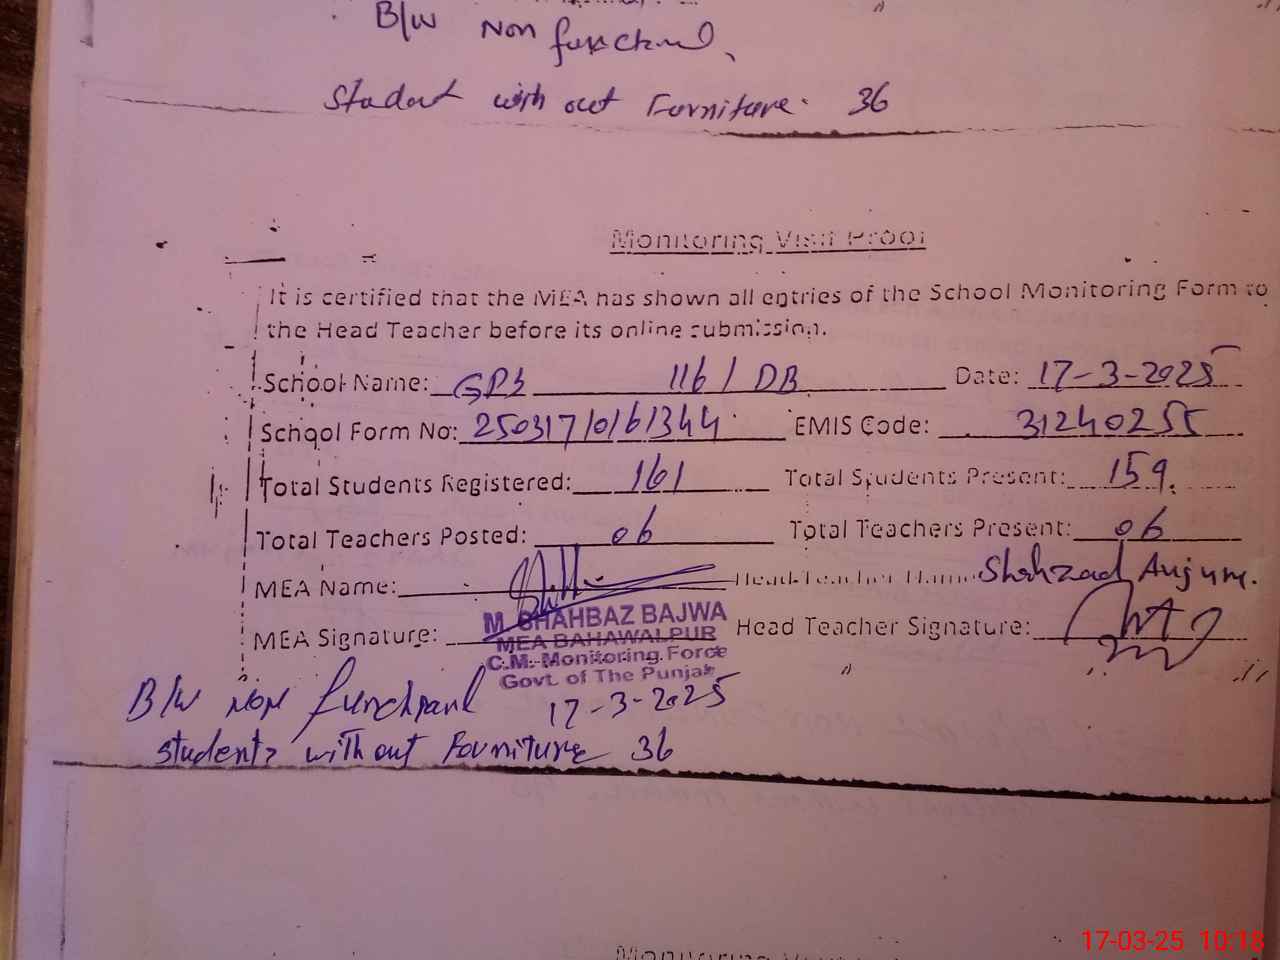 B/W Non functional.
Student with out Furniture. 36
Monitoring Visit Proof
It is certified that the MEA has shown all entries of the School Monitoring Form to
the Head Teacher before its online submission.
School Name: GPS 116/DB Date: 17-3-2025
School Form No: 250317/0161344 EMIS Code: 31240255
Total Students Registered: 161 Total Students Present: 159.
Total Teachers Posted: 06 Total Teachers Present: 06
MEA Name: Head Teacher Name Shahzad Anjum.
MEA Signature: Head Teacher Signature:
M. SHAHBAZ BAJWA
MEA BAHAWALPUR
C.M. Monitoring Force
Govt. of The Punjab
B/W non functional 17-3-2025
students without Fourniture 36
17-03-25 10:18